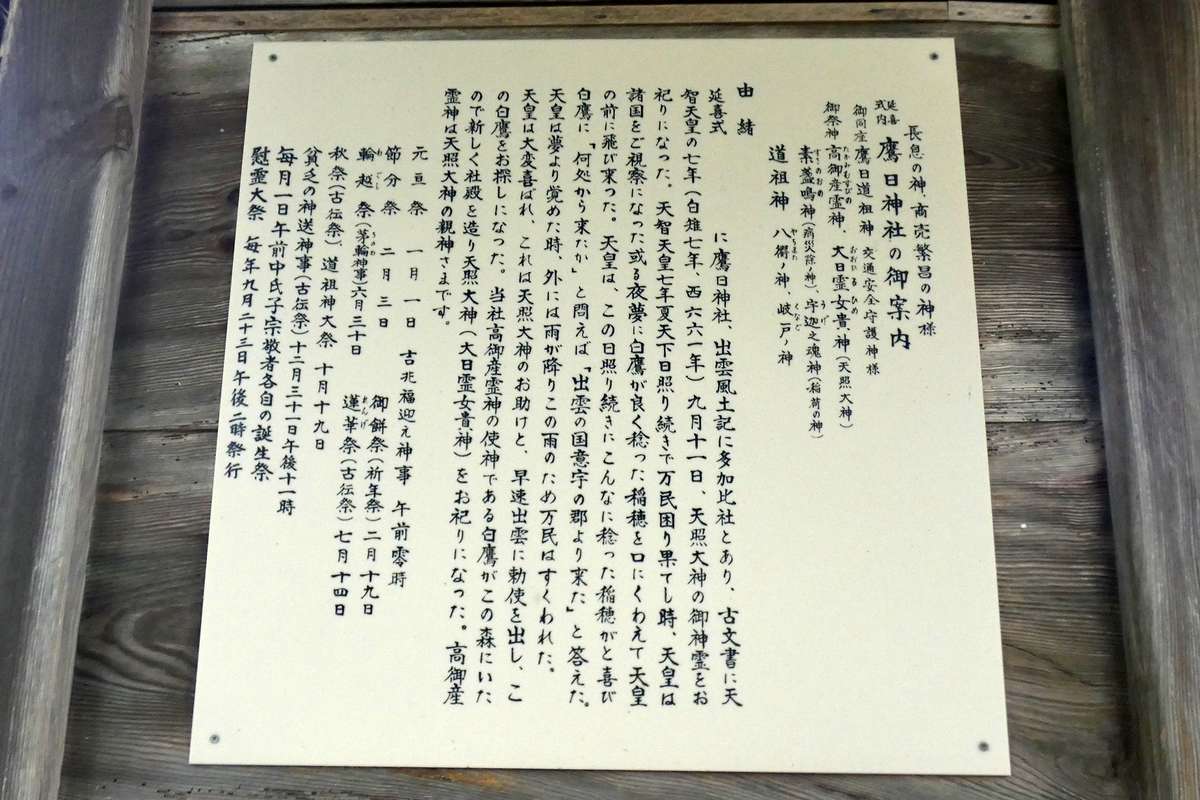 長息の神、商売繁昌の神様
延喜式内 鷹日神社の御案内
御同座 鷹日道祖神 交通安全守護神様
御祭神 高御産霊神、大日霊女貴神(天照大神)
たかみむすびの おおひるひめ
素盞嗚神(病災除ノ神)、宇迦之魂神(稲荷の神)
すさのおめ うげ
道祖神 八衢ノ神、岐戸ノ神
やちまた くなど
由緒
延喜式 に鷹日神社、出雲風土記に多加比社とあり、古文書に天
智天皇の七年(白雉七年、西六六一年)九月十一日、天照大神の御神霊をお
祀りになった。天智天皇七年夏天下日照り続きで万民困り果てし時、天皇は
諸国をご視察になった或る夜夢に白鷹が良く稔った稲穂を口にくわえて天皇
の前に飛び来った。天皇は、この日照り続きにこんなに稔った稲穂がと喜び
白鷹に「何処から来たか」と問えば「出雲の国意宇の郡より来た」と答えた。
天皇は夢より覚めた時、外には雨が降りこの雨のため万民はすくわれた。
天皇は大変喜ばれ、これは天照大神のお助けと、早速出雲に勅使を出し、こ
の白鷹をお探しになった。当社高御産霊神の使神である白鷹がこの森にいた
ので新しく社殿を造り天照大神(大日霊女貴神)をお祀りになった。高御産
霊神は天照大神の親神さまです。
元旦祭 一月一日 吉兆福迎え神事 午前零時
節分祭 二月三日 御餅祭(祈年祭)二月十九日
輪越祭(茅輪神事)六月三十日 蓮華祭(古伝祭)七月十四日
わごし ちのわ れんげ
秋祭(古伝祭)、道祖神大祭 十月十九日
貧乏の神送神事(古伝祭)十二月三十一日午後十一時
毎月一日午前中氏子宗敬者各自の誕生祭
慰霊大祭 毎年九月二十三日午後二時祭行